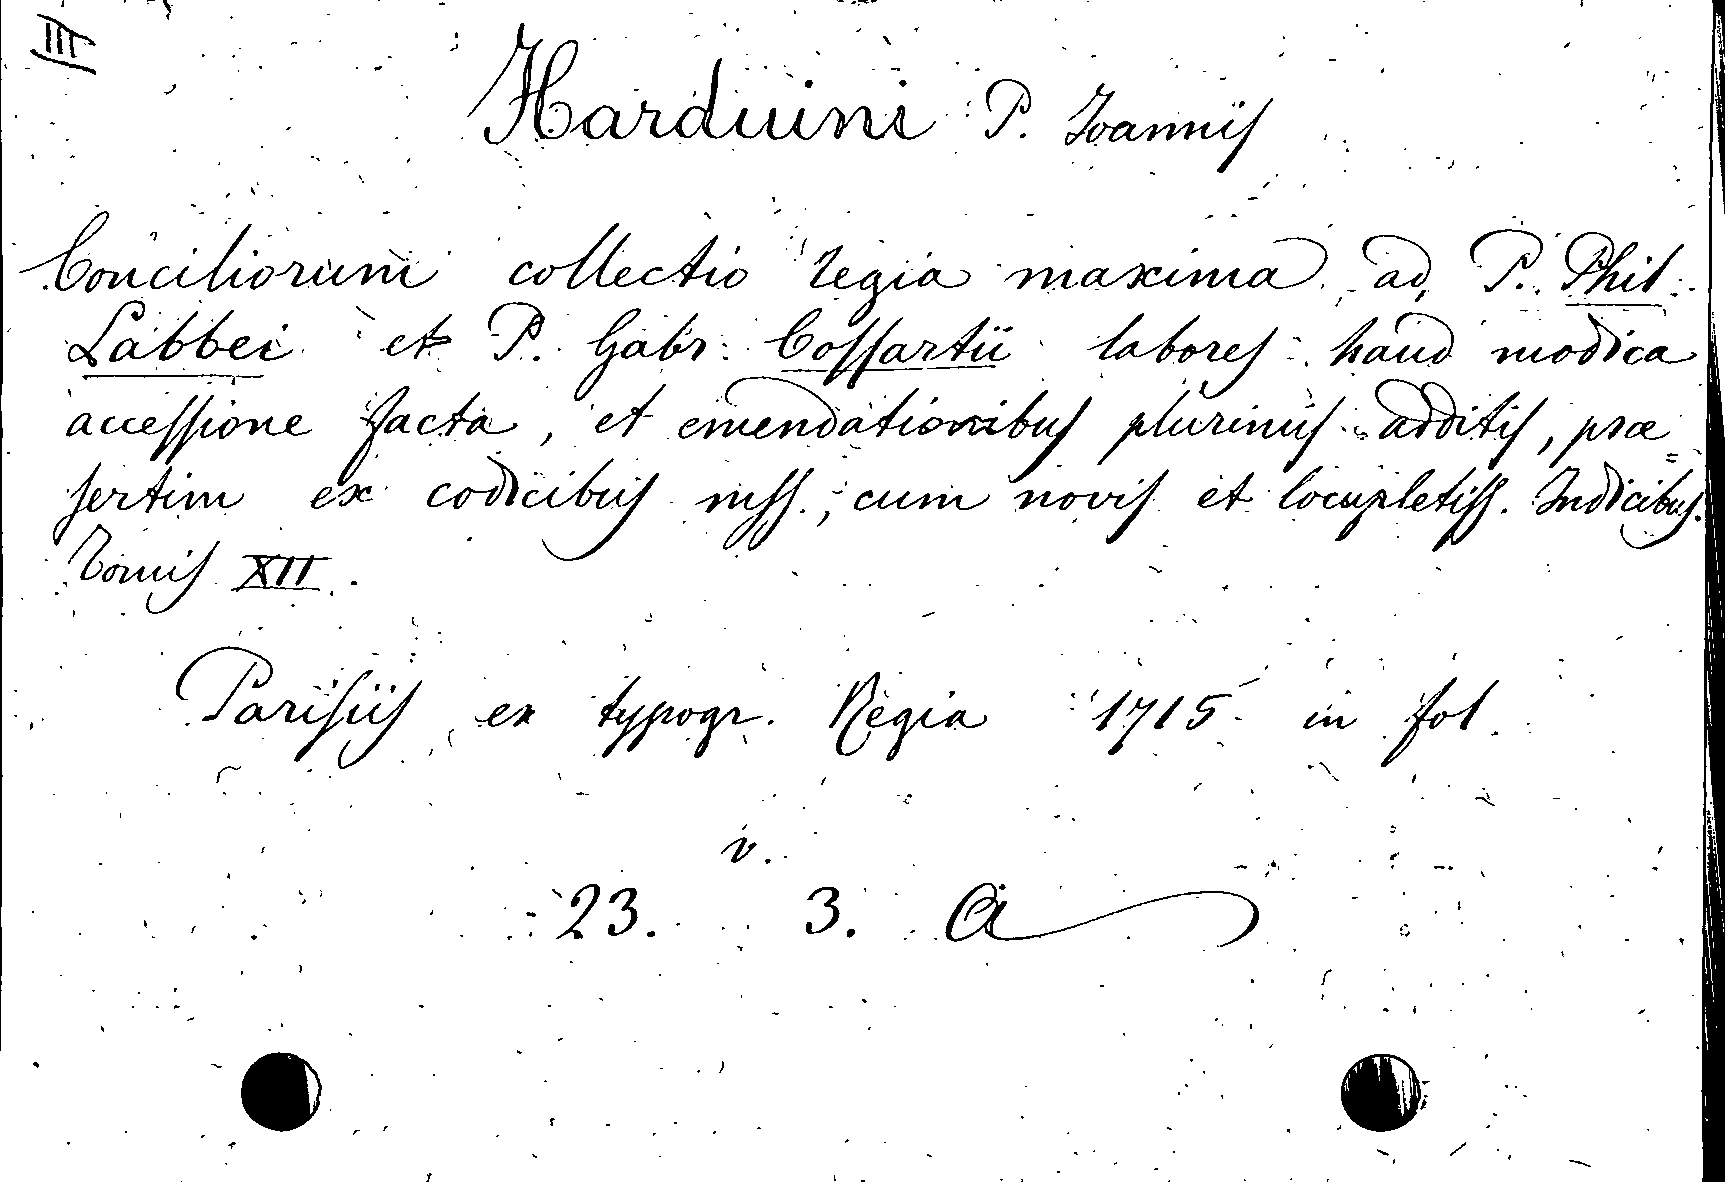 III
Harduini P. Joannis
Conciliorum collectio regia maxima ad P. Phil.
Labbei et P. Gabr. Cossartii labores haud modica
accessione facta, et emendationibus plurimis additis, præ=
sertim ex codicibus mss., cum novis et locupletiss. Indicibus.
Tomis XII.
Parisiis ex typogr. Regia 1715 in fol.
v.
23. 3. a